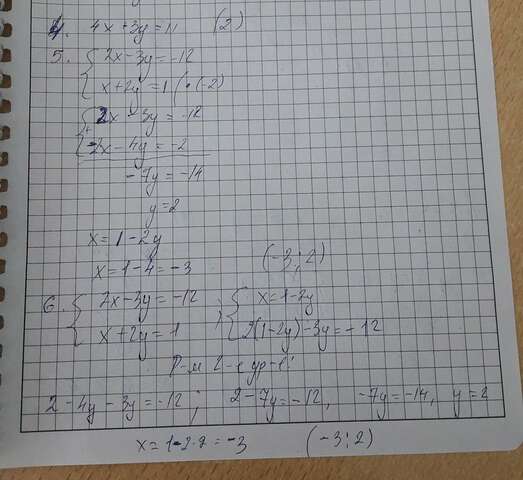 4. 4x+3y=11 (2)
5. { 2x-3y=-12
x+2y=1 | ·(-2)
{ 2x-3y=-12
+
-2x-4y=-2
-7y=-14
y=2
x=1-2y
x=1-4=-3 (-3;2)
6. { 2x-3y=-12 ; { x=1-2y
x+2y=1 2(1-2y)-3y=-12
Р-м 2-е ур-е:
2-4y-3y=-12; 2-7y=-12, -7y=-14, y=2
x=1-2·2=-3 (-3;2)